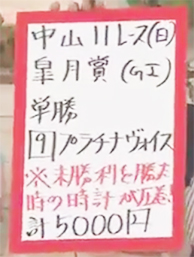 中山11レース(日)
皐月賞(GI)
単勝
9プラチナヴォイス
※未勝利を勝った
時の時計が
計5000円